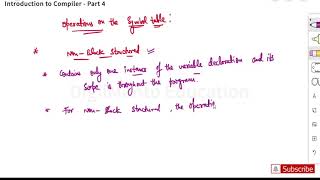 Introduction to Compiler - Part 4
operations on the symbol table :
* non-Block structured
* Contains only one instance of the variable declaration and its
Scope is throughout the program.
* For non-Block structured, the operati
Subscribe